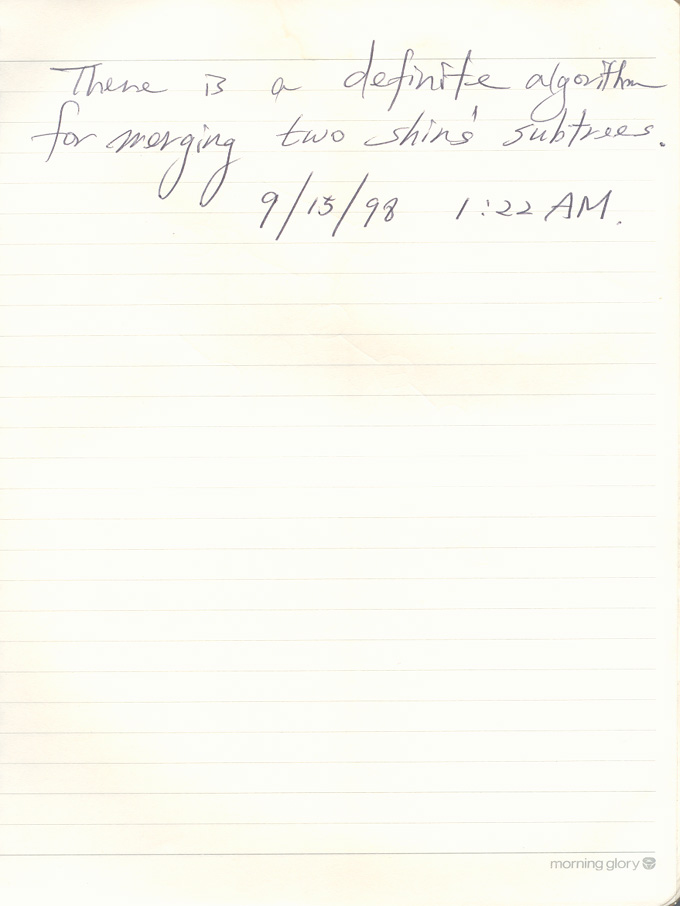 There is a definite algorithm
for merging two shins' subtrees.
9/15/98 1:22 AM.
morning glory